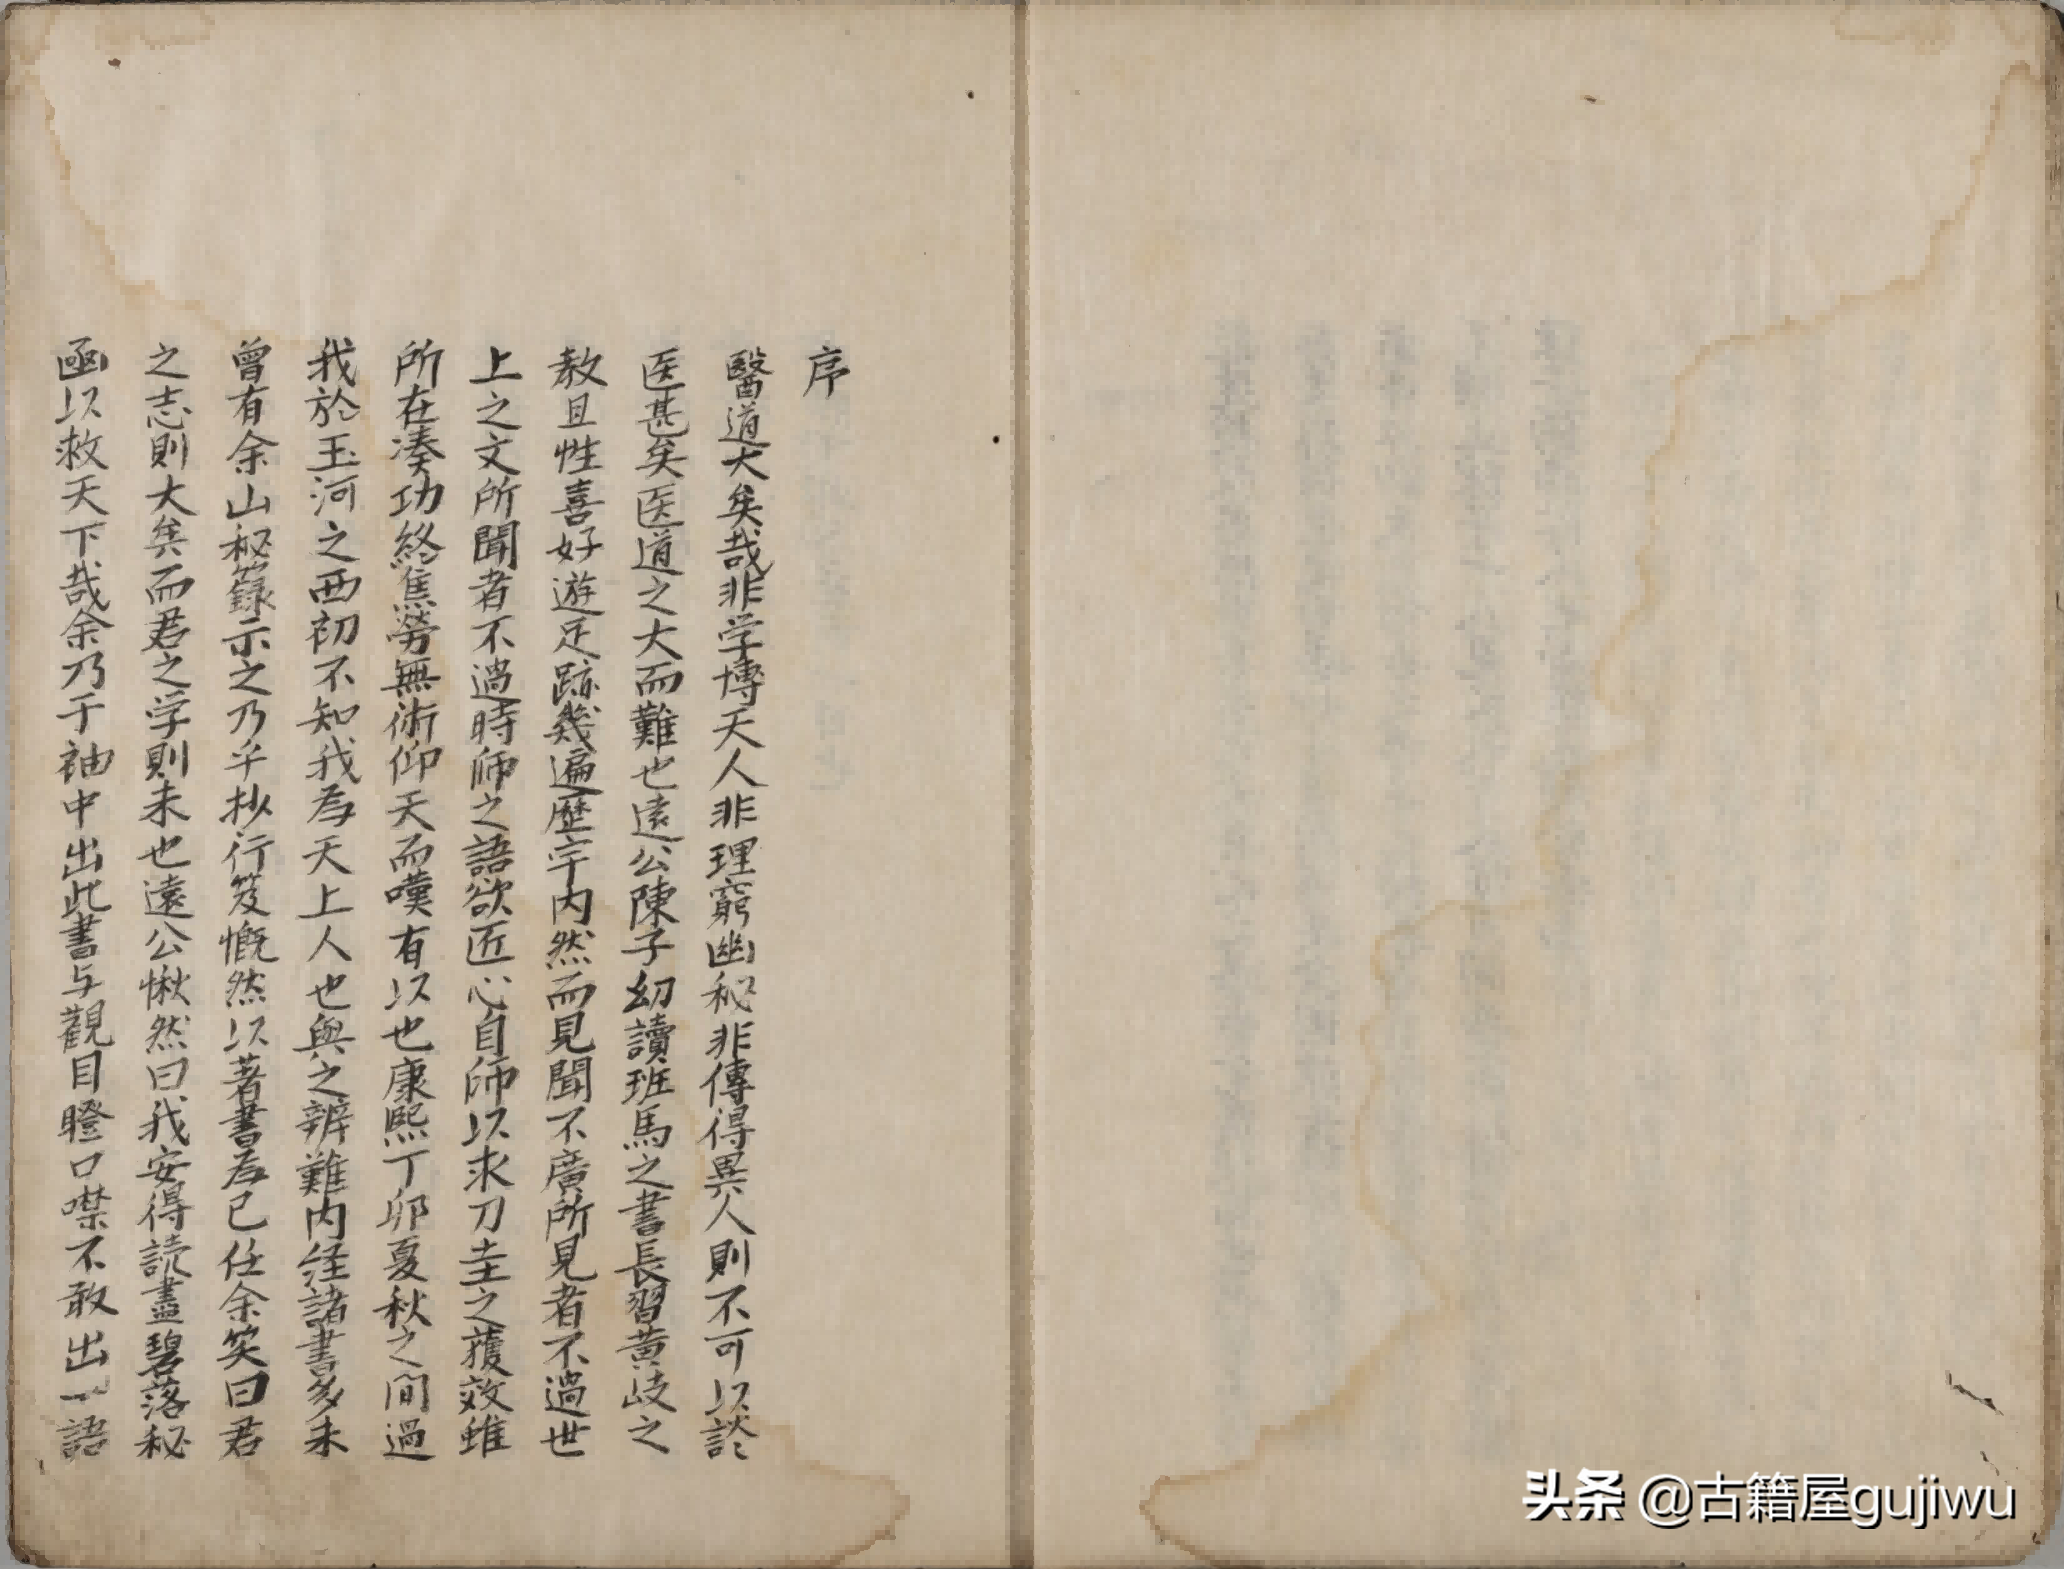 序
醫道大矣哉非学博天人非理窮幽秘非傳得異人則不可以談
医甚矣医道之大而難也遠公陳子幼讀班馬之書長習黄岐之
教且性喜好遊足跡幾遍歴宇内然而見聞不廣所見者不過世
上之文所聞者不過時師之語欲匠心自師以求刀圭之獲效雖
所在湊功終焦勞無術仰天而嘆有以也康熙丁卯夏秋之間過
我於玉河之西初不知我為天上人也與之辨難内経諸書多未
曽有余山秘籙示之乃手抄行笈慨然以著書為已任余笑曰君
之志則大矣而君之学則未也遠公愀然曰我安得読盡碧落秘
函以救天下哉余乃于袖中出此書与觀目瞪口噤不敢出一語
头条 @古籍屋gujiwu